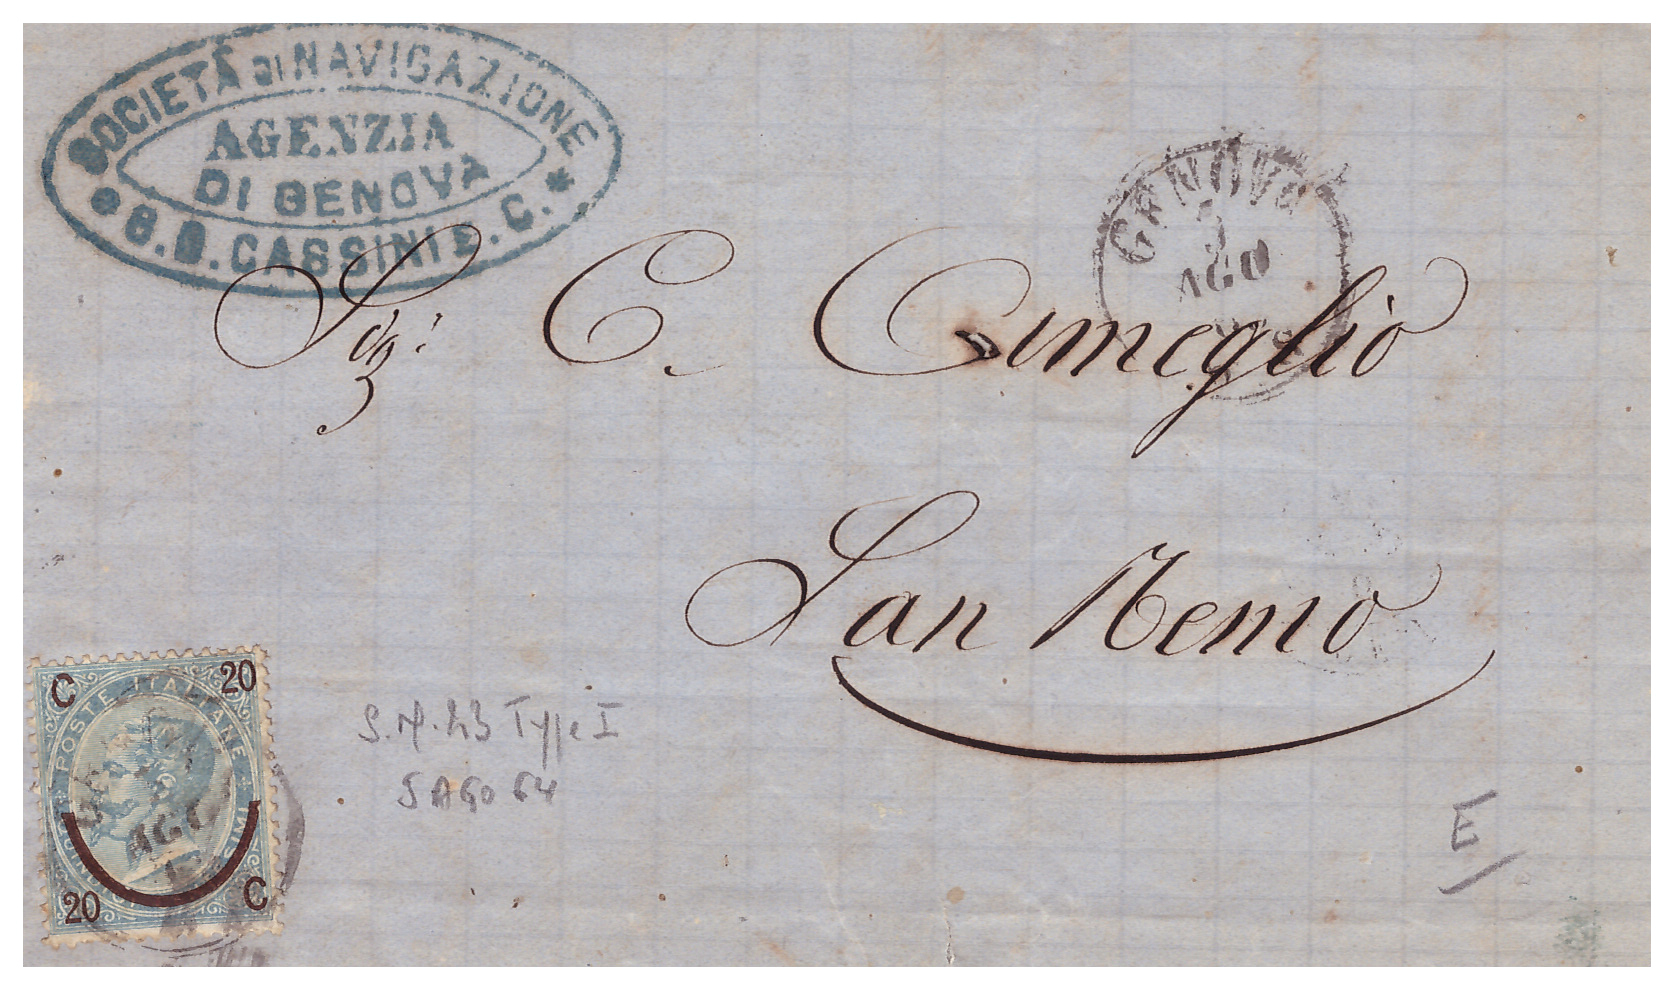 SOCIETÀ DI NAVIGAZIONE
AGENZIA
DI GENOVA
CASSINI E. C. *
GENOVA
AGO
Sigr: C. Cumeglio
San Remo
C 20
POSTE ITALIANE
AGO
20 C
S.M. 23 Type I
5 AGO 64
E